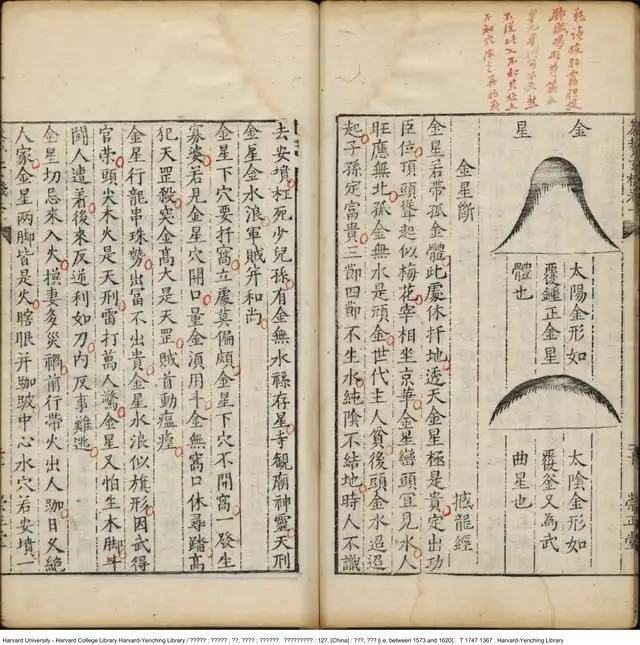 金
星
太陽金形如
覆鍾正金星
體也
太陰金形如
覆釜又為武
曲星也
金星斷 撼龍經
金星若帶孤金體此處休扦地透天金星極是貴定出功
臣位頂頭聳起似梅花宰相坐京華金星巒頭宜見水人
旺應無北孤金無水是頑金世代主人貧後頭金水迢迢
起子孫定富貴三節四節不生水純陰不結地時人不識
去安墳枉死少兒孫有金無水祿存星寺觀廟神靈天刑
金星金水浪軍賊并和尚
金星下穴要扦窩立處莫偏頗金星下穴不開窩一發生
寡婆若見金星穴開口量金須用斗金無窩口休尋踏高
犯天罡殺突金高大是天罡賊首動瘟
金星行龍串珠勢出富不出貴金星水浪似旗形因武得
官榮頭尖木火是天刑雷打萬人驚金星又怕生木脚斗
鬪人遭着後來反逆利如刀內反事難逃
金星切忌來入火損妻多災禍前行帶火出人跏日久絕
人家金星兩脚皆是火瞎眼并跏跛中心水穴若安墳一
崇正堂
Harvard University - Harvard College Library Harvard-Yenching Library / ????? ; ????? ; ??, ???? ; ??????. ????????? : 12?. [China] : ???, ??? [i.e. between 1573 and 1620] . T 1747 1367 . Harvard-Yenching Library